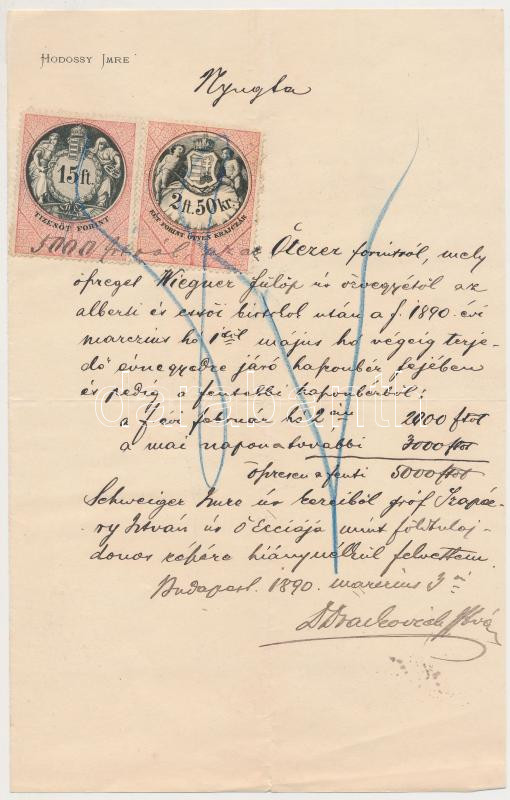 HODOSSY IMRE
Nyugta
15 ft.
TIZENÖT FORINT
2 ft. 50 kr.
KÉT FORINT ÖTVEN KRAJCZÁR
5000 az Ötezer forintról, mely
összeget Wiegner Fülöp és özvegyétől az
alberti és után a f. 1890. évi
marczius hó 1től május hó végeig terje-
dő évnegyedre járó haszonbér fejében
és pedig a fentebbi haszonbérből:
a f. évi február hó 2án 2000 ftot
a mai napon a további 3000 ftot
összesen a fenti 5000 ftot
Schweiger Imre úr kezeiből gróf Szapá-
ry István úr Ő Excjája mint földtulaj-
donos részére hiány nélkül felvettem.
Budapest. 1890. marczius 3án
István
darabanth